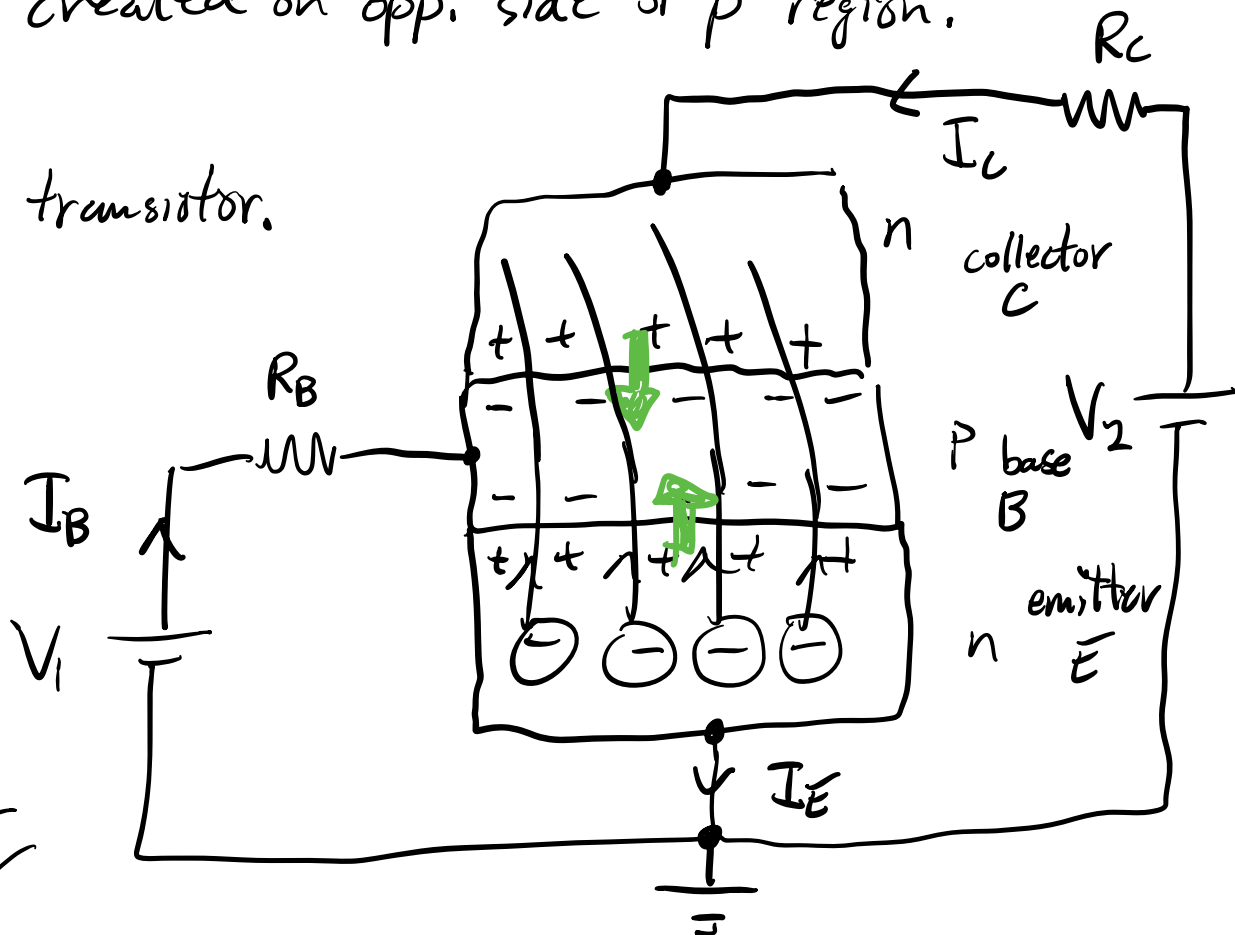 created on opp. side of p region.
R_C
I_C
transistor.
n
collector
C
R_B
+ + + + +
- - - - -
V_2
p base
B
I_B
- - - -
+ + + + +
emitter
E
n
V_1
- - - -
I_E